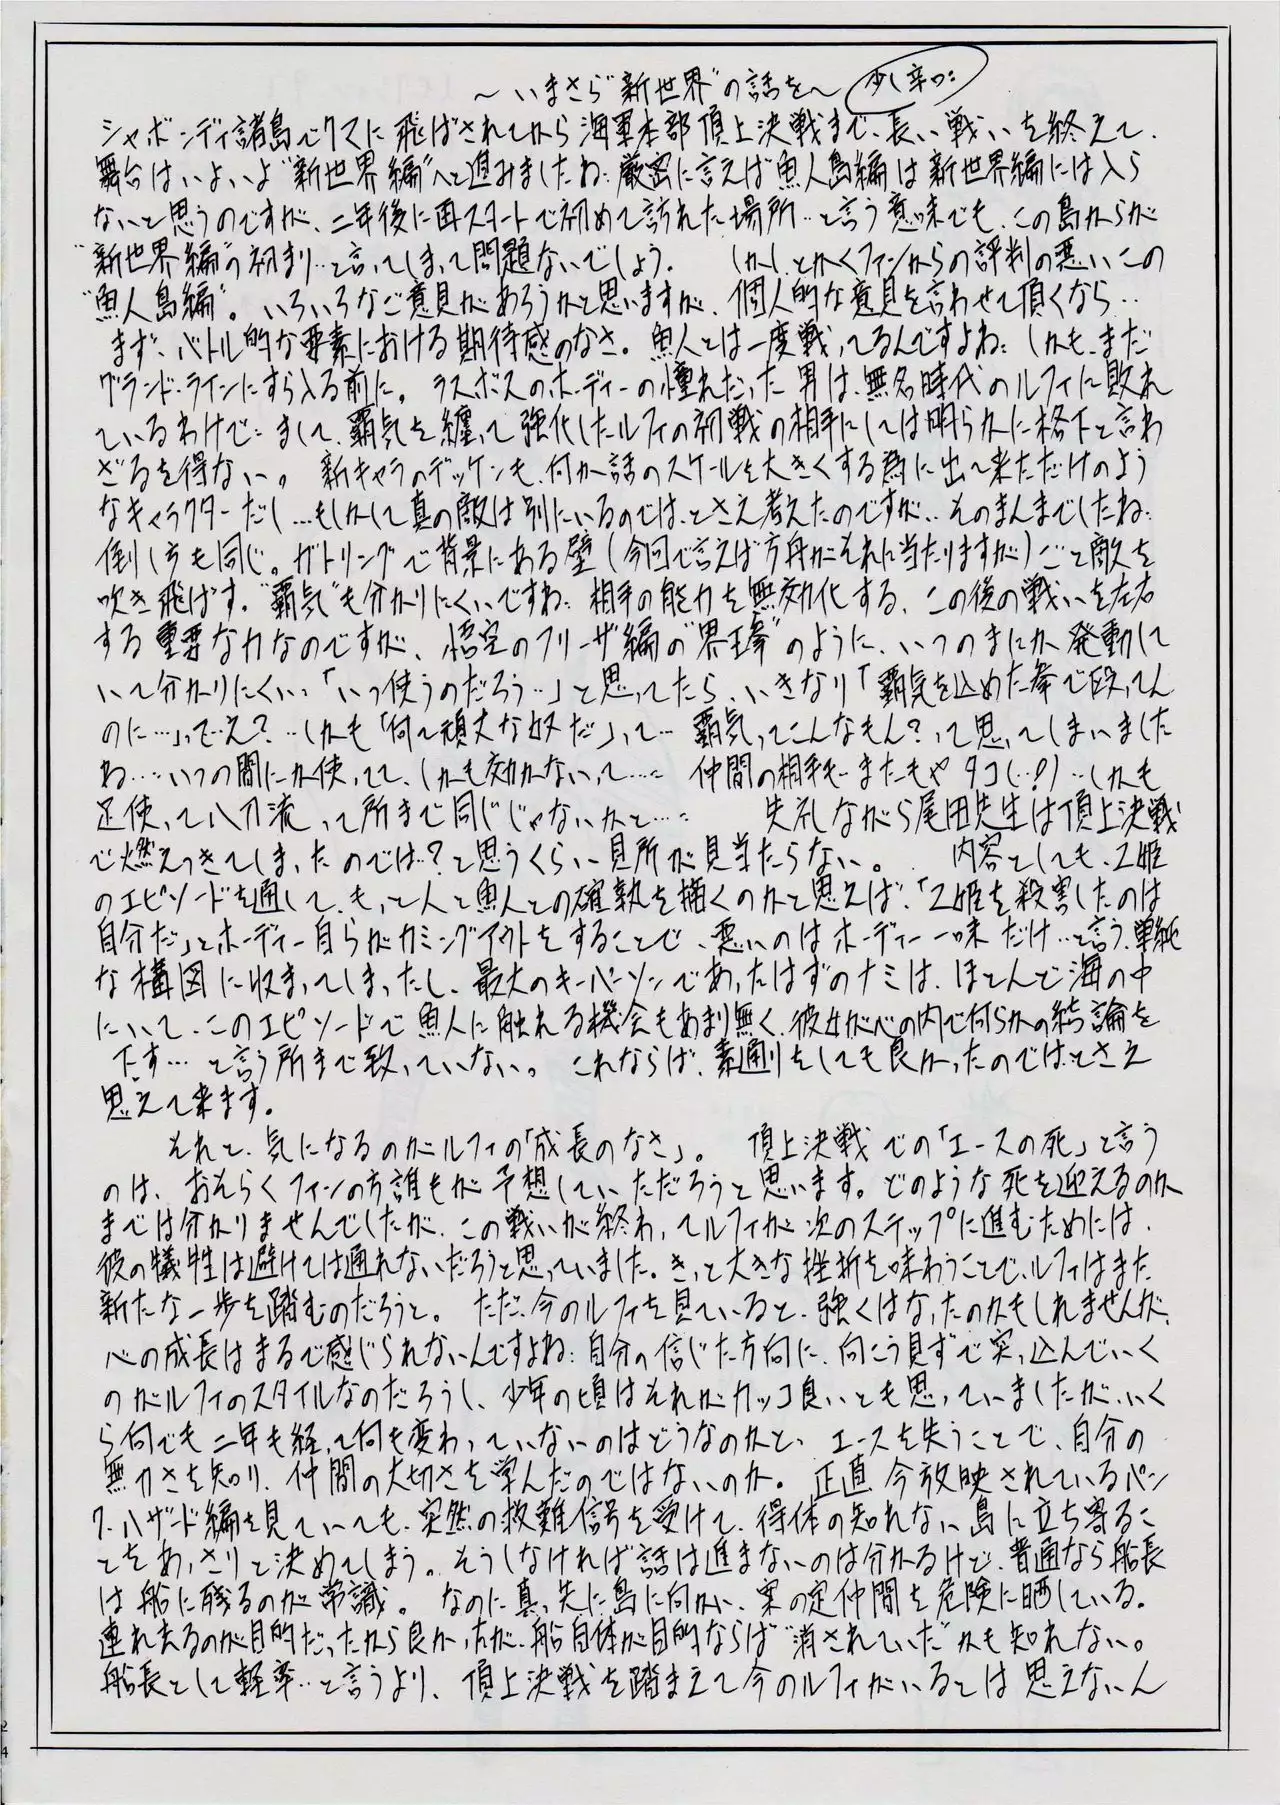 ～いまさら"新世界"の話を～ 少し辛口:
シャボンディ諸島でクマに飛ばされてから海軍本部頂上決戦まで、長い戦いを終えて、
舞台はいよいよ"新世界編"へと進みましたね: 厳密に言えば魚人島編は新世界編には入ら
ないと思うのですが、二年後に再スタートで初めて訪れた場所…と言う意味でも、この島からが
"新世界編"の初まり…と言ってしまって問題ないでしょう。 しかし、とかくファンからの評判の悪いこの
"魚人島編"。いろいろなご意見があろうかと思いますが、個人的な意見を言わせて頂くなら…
まず、バトル的な要素における期待感のなさ。魚人とは一度戦ってるんですよね: しかも、まだ
グランド・ラインにすら入る前に。 ラスボスのホーディーの憧れだった男は、無名時代のルフィに敗れ
ているわけで: まして、覇気を纏って強化したルフィの初戦の相手にしては明らかに格下と言わ
ざるを得ない。 新キャラのデッケンも、何か話のスケールを大きくする為に出て来ただけのよう
なキャラクターだし…もしかして真の敵は別にいるのでは、とさえ考えたのですが…そのまんまでしたね:
倒し方も同じ。ガトリングで背景にある壁(今回で言えば方舟がそれに当たりますが)ごと敵を
吹き飛ばす。"覇気"も分かりにくいですね: 相手の能力を無効化する、この後の戦いを左右
する重要な力なのですが、悟空のフリーザ編の"界王拳"のように、いつのまにか発動して
いて分かりにくい。「いつ使うのだろう…」と思ってたら、いきなり「覇気を込めた拳で殴ってん
のに…」って…え?…しかも「何て頑丈な奴だ」って… 覇気ってこんなもん?って思ってしまいました
ね…: いつの間にか使ってて、しかも効かないって…: 仲間の相手も…またもやタコ(…!)…しかも
足使って八刀流って所まで同じじゃないかと…: 失礼ながら尾田先生は頂上決戦
で燃えつきてしまったのでは?と思うくらい見所が見当たらない。 内容としても、乙姫
のエピソードを通して、もっと人と魚人との確執を描くのかと思えば、「乙姫を殺害したのは
自分だ」とホーディー自らがカミングアウトをすることで、悪いのはホーディー一味だけ…と言う、単純
な構図に収まってしまったし、最大のキーパーソンであったはずのナミは、ほとんど海の中
にいて、このエピソードで魚人に触れる機会もあまり無く、彼女が心の内で何らかの結論を
下す…と言う所まで致っていない。 これならば、素通りをしても良かったのでは、とさえ
思えて来ます。
それと、気になるのがルフィの「成長のなさ」。 頂上決戦での「エースの死」と言う
のは、おそらくファンの方誰もが予想していただろうと思います。どのような死を迎えるのか
までは分かりませんでしたが、この戦いが終わってルフィが次のステップに進むためには、
彼の犠牲は避けては通れないだろうと思っていました。きっと大きな挫折を味わうことで、ルフィはまた
新たな一歩を踏むのだろうと。 ただ、今のルフィを見ていると、強くはなったのかもしれませんが、
心の成長はまるで感じられないんですよね: 自分の信じた方向に、向こう見ずで突っ込んでいく
のがルフィのスタイルなのだろうし、少年の頃はそれがカッコ良いとも思っていましたが、いく
ら何でも二年も経って何も変わっていないのはどうなのかと、 エースを失うことで、自分の
無力さを知り、仲間の大切さを学んだのではないのか。 正直、今放映されているパン
ク・ハザード編を見ていても、突然の救難信号を受けて、得体の知れない島に立ち寄るこ
とをあっさりと決めてしまう。そうしなければ話は進まないのは分かるけど、普通なら船長
は船に残るのが常識。 なのに真っ先に島に向かい、案の定仲間を危険に晒している。
連れ去るのが目的だったから良かったが、船自体が目的ならば"消されていた"かも知れない。
船長として軽率…と言うより、頂上決戦を踏まえて今のルフィがいるとは思えないん
24